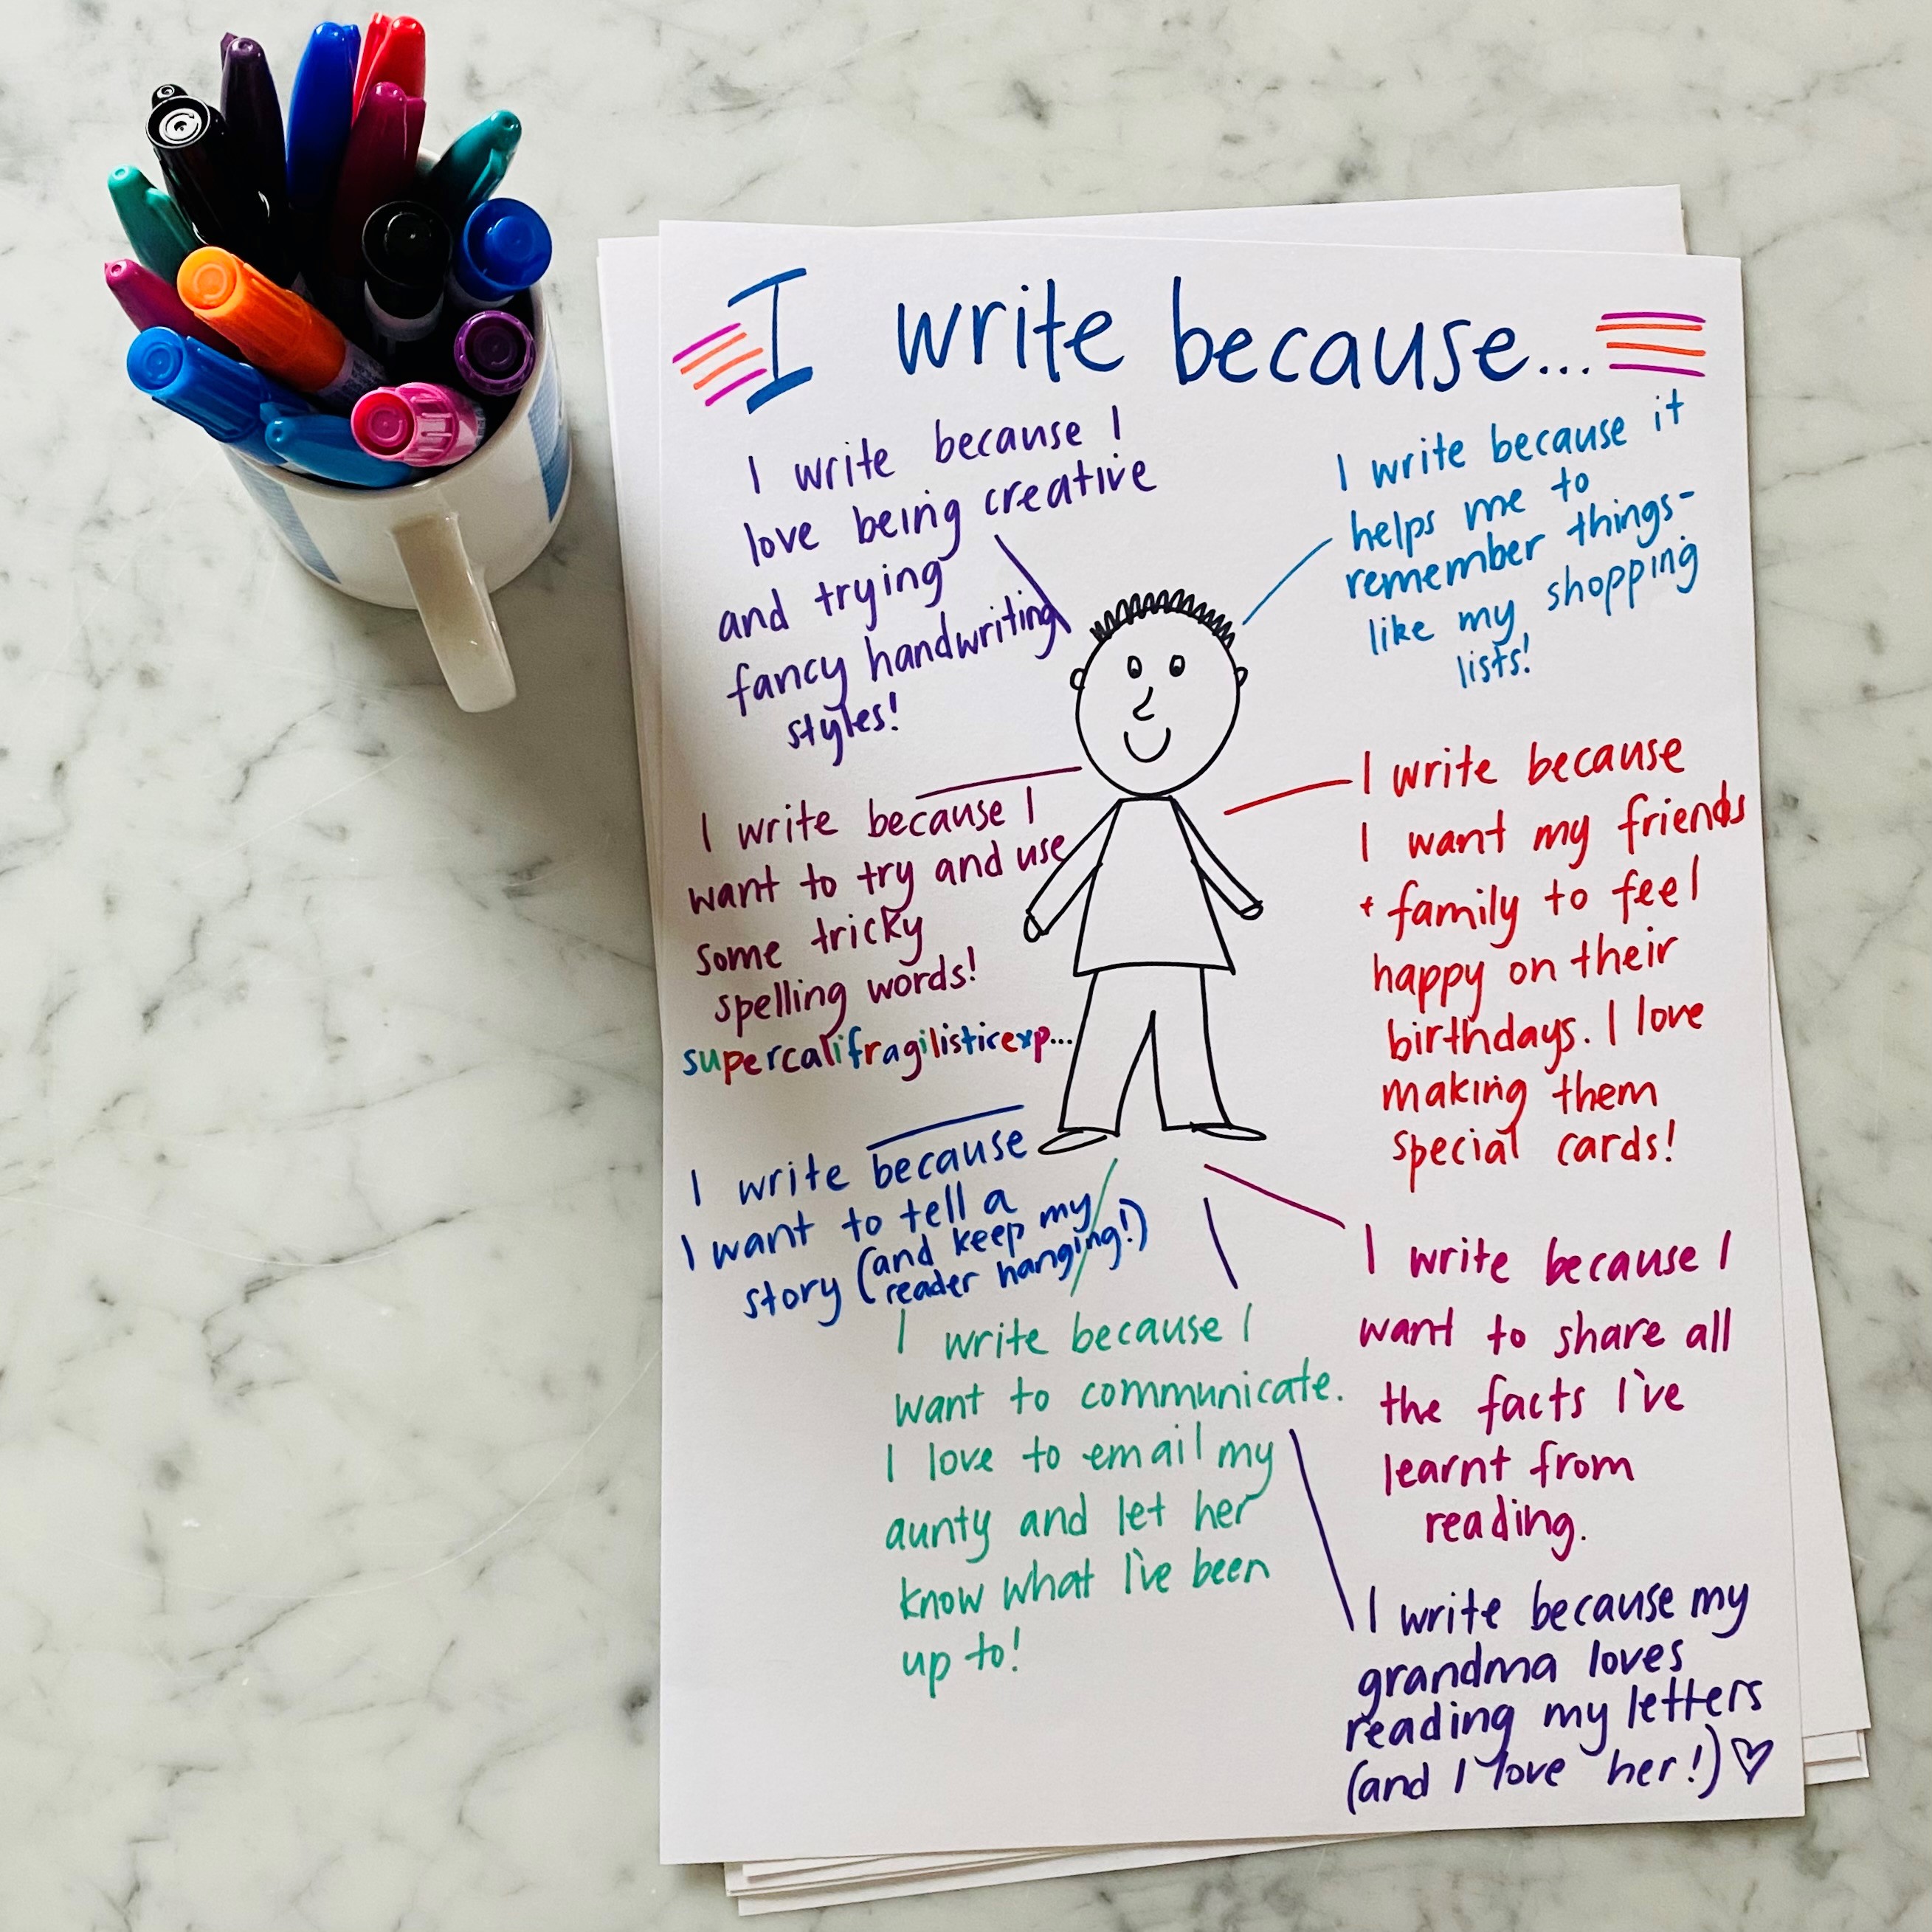 I write because...
I write because I
love being creative
and trying
fancy handwriting
styles!
I write because it
helps me to
remember things-
like my shopping
lists!
I write because I
want to try and use
some tricky
spelling words!
supercalifragilisticexp...
I write because
I want my friends
+ family to feel
happy on their
birthdays. I love
making them
special cards!
I write because
I want to tell a
story (and keep my
reader hanging!)
I write because I
want to communicate.
I love to email my
aunty and let her
know what I've been
up to!
I write because I
want to share all
the facts I've
learnt from
reading.
I write because my
grandma loves
reading my letters
(and I love her!) ♡